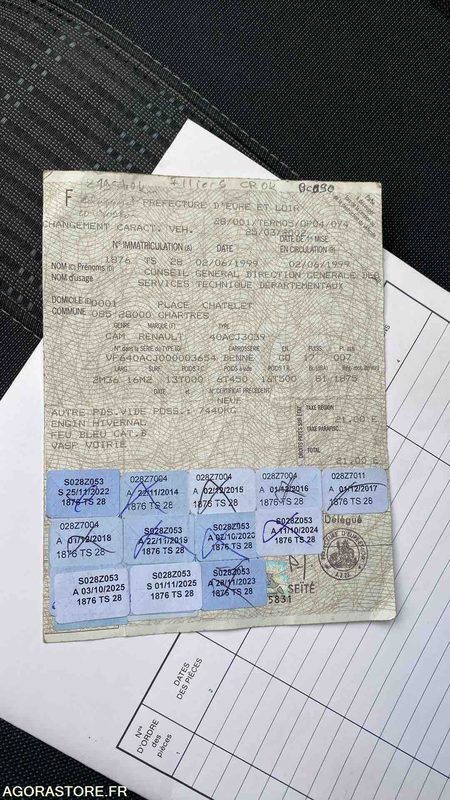 F PREFECTURE D'EURE ET LOIR
28/001/TERM05/OP04/074
CHANGEMENT CARACT. VEH. 25/03/2002
N° IMMATRICULATION (A) DATE DATE DE 1re MISE EN CIRCULATION (B)
1876 TS 28 02/06/1999 02/06/1999
NOM (C) Prénoms (D) CONSEIL GENERAL DIRECTION GENERALE DES
N. d'usage SERVICES TECHNIQUE DEPARTEMENTAUX
DOMICILE 0001 PLACE CHATELET
COMMUNE 085 28000 CHARTRES
GENRE MARQUE (F) TYPE
CAM RENAULT 40ACJ3C39
N° dans la SERIE du TYPE (G) CARROSSERIE EN. PUISS. P. ass
VF640ACJ000003654 BENNE GO 17 007
LARG. SURF.
2M36 16M2 13T000 6T450 16T500 81 1875
DATE N° CERTIFICAT PRECEDENT
NEUF
AUTRE PDS.VIDE POSS.: 7440KG
ENGIN HIVERNAL
FEU BLEU CAT.B
VASP VOIRIE
TAXE REGION
21,00 E
TAXE PARAFISC.
TOTAL
21,00 E
S028Z053
S 25/11/2022
1876 TS 28
028Z7004
A 22/11/2014
1876 TS 28
028Z7004
A 02/12/2015
1876 TS 28
028Z7004
A 01/12/2016
1876 TS 28
028Z7011
A 01/12/2017
1876 TS 28
028Z7004
A 01/12/2018
1876 TS 28
S028Z053
A 22/11/2019
1876 TS 28
S028Z053
A 02/10/2020
1876 TS 28
S028Z053
A 11/10/2024
1876 TS 28
Délégué
S028Z053
A 03/10/2025
1876 TS 28
S028Z053
S 01/11/2025
1876 TS 28
S028Z053
A 28/11/2023
1876 TS 28
SEITÉ
5831
DATES
DES PIÈCES
N°s
D'ORDRE
des
pièces
1
2
AGORASTORE.FR